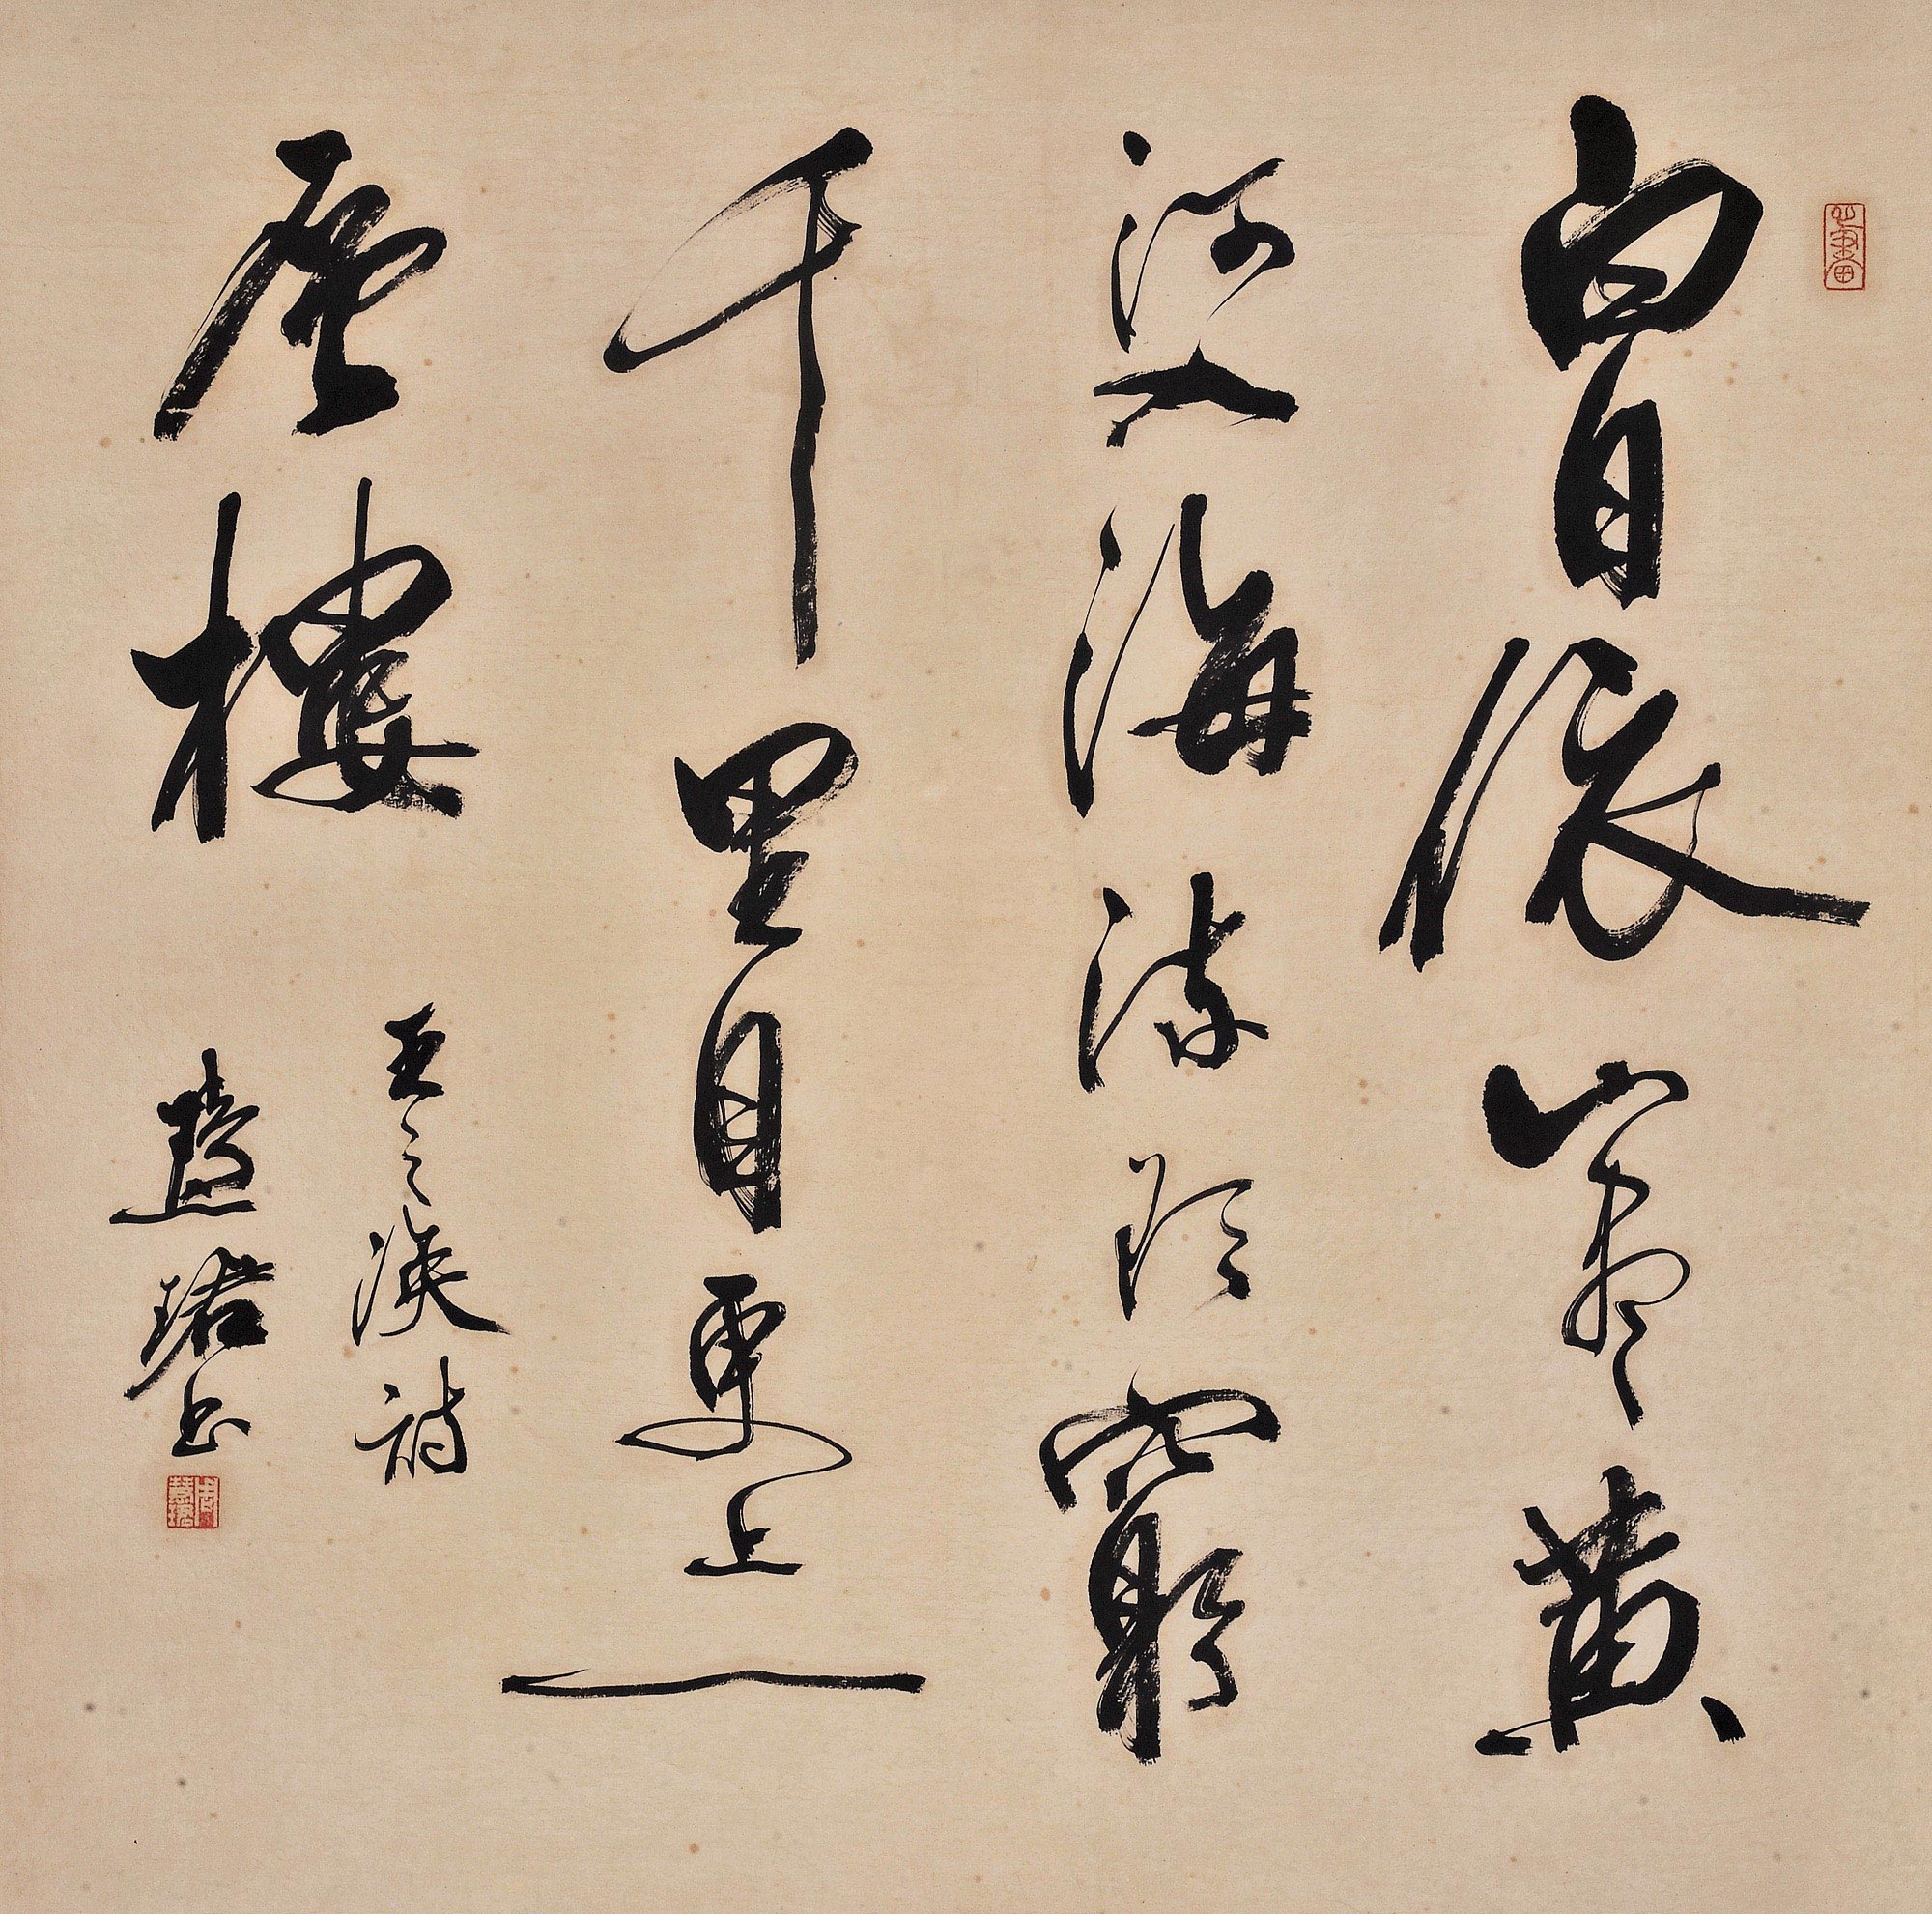 白日依山盡黃
河入海流欲窮
千里目更上一
層樓
王之渙詩
慧珺書
周慧珺